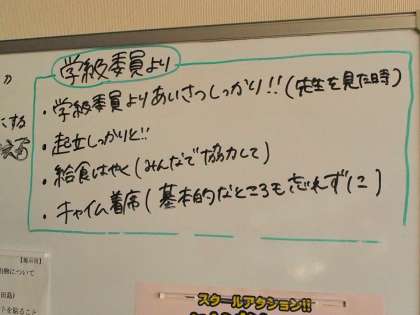 学級委員より
・学級委員よりあいさつしっかり!!(先生を見た時)
・起立しっかりと!!
・給食はやく(みんなで協力して)
・チャイム着席(基本的なところも忘れずに)
にする
【掲示用】
スクールアクション!!